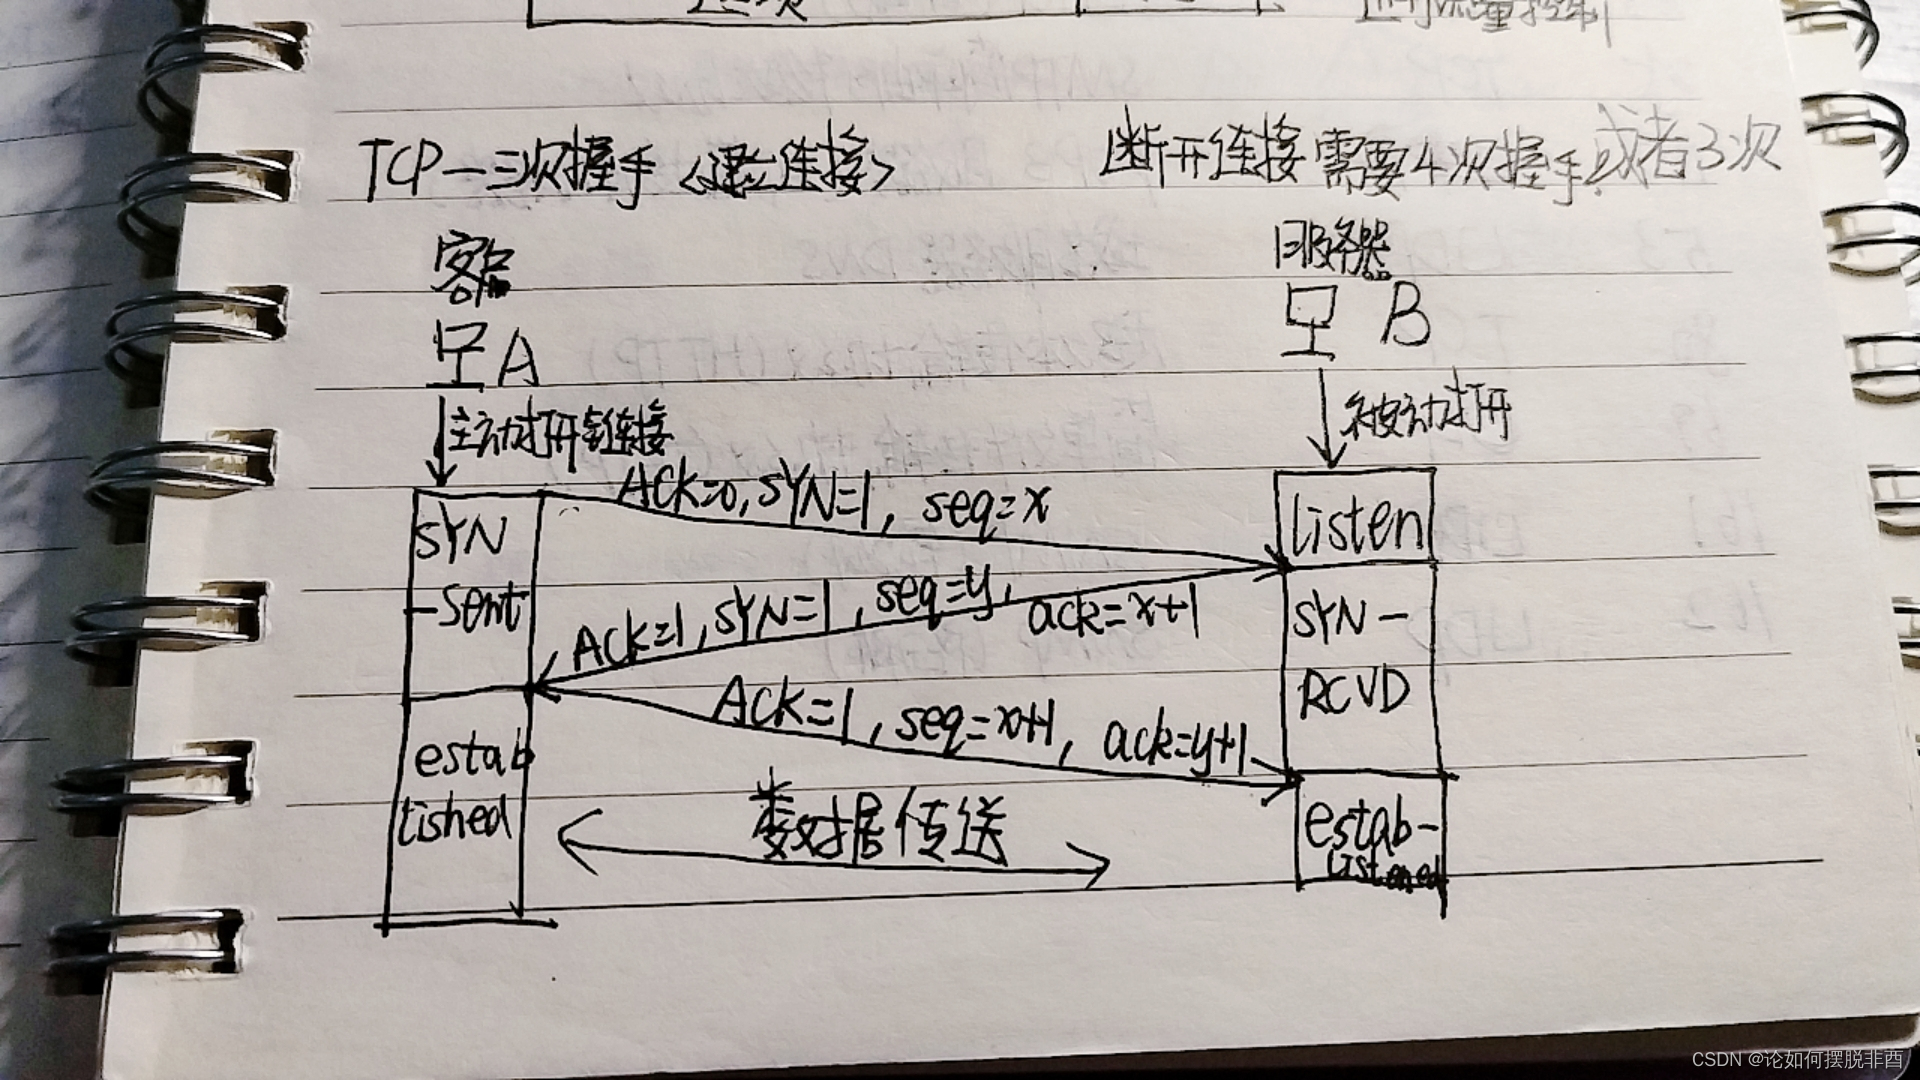 TCP—三次握手<建立连接>
断开连接需要4次握手或者3次
客户
服务器
A
B
主动打开链接
被动打开
ACK=0,SYN=1, seq=x
SYN
-Sent
listen
ACK=1,SYN=1,seq=y,
ack=x+1
SYN-
RCVD
ACK=1,seq=x+1,ack=y+1
estab
lished
数据传送
estab-
CSDN @论如何摆脱非酋